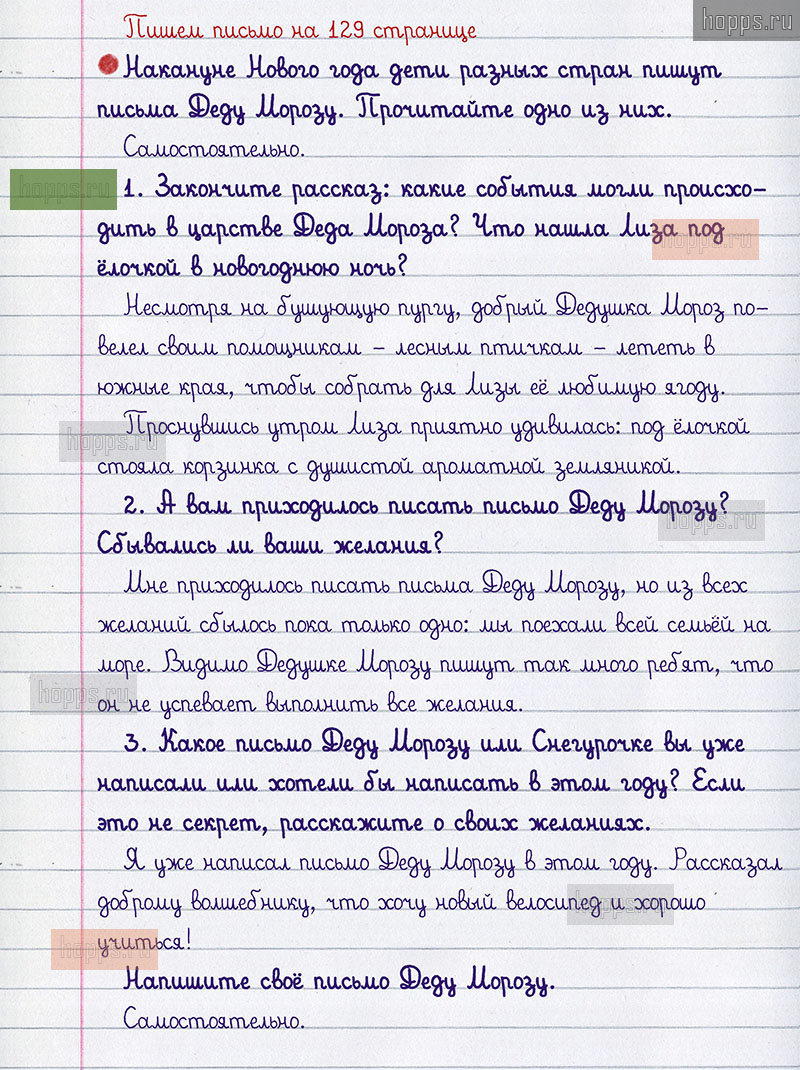 hopps.ru
Пишем письмо на 129 странице
Накануне Нового года дети разных стран пишут
письма Деду Морозу. Прочитайте одно из них.
Самостоятельно.
hopps.ru
1. Закончите рассказ: какие события могли происхо-
дить в царстве Деда Мороза? Что нашла Лиза под
hopps.ru
ёлочкой в новогоднюю ночь?
Несмотря на бушующую пургу, добрый Дедушка Мороз по-
велел своим помощникам – лесным птичкам – лететь в
южные края, чтобы собрать для Лизы её любимую ягоду.
Проснувшись утром Лиза приятно удивилась: под ёлочкой
hopps.ru
стояла корзинка с душистой ароматной земляникой.
2. А вам приходилось писать письмо Деду Морозу?
hopps.ru
Сбывались ли ваши желания?
Мне приходилось писать письма Деду Морозу, но из всех
желаний сбылось пока только одно: мы поехали всей семьёй на
море. Видимо Дедушке Морозу пишут так много ребят, что
hopps.ru
он не успевает выполнить все желания.
3. Какое письмо Деду Морозу или Снегурочке вы уже
написали или хотели бы написать в этом году? Если
это не секрет, расскажите о своих желаниях.
Я уже написал письмо Деду Морозу в этом году. Рассказал
доброму волшебнику, что хочу новый велосипед и хорошо
hopps.ru
учиться!
hopps.ru
Напишите своё письмо Деду Морозу.
Самостоятельно.